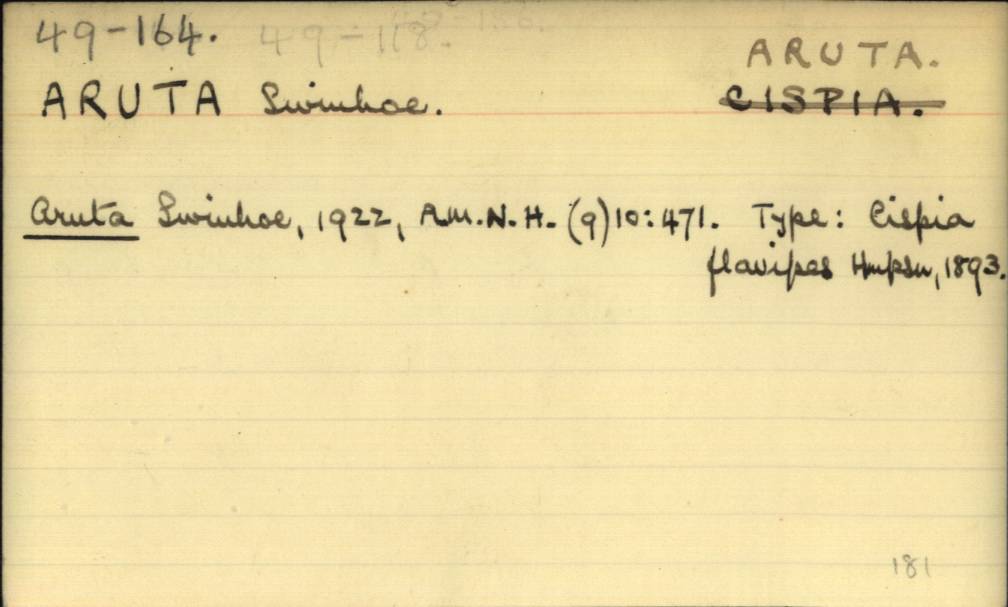 49-164. 49-118.
ARUTA.
ARUTA Swinhoe. CISPIA.
Aruta Swinhoe, 1922, A.M.N.H. (9)10:471. Type: Cispia
flavipes Hmpsn, 1893.
181